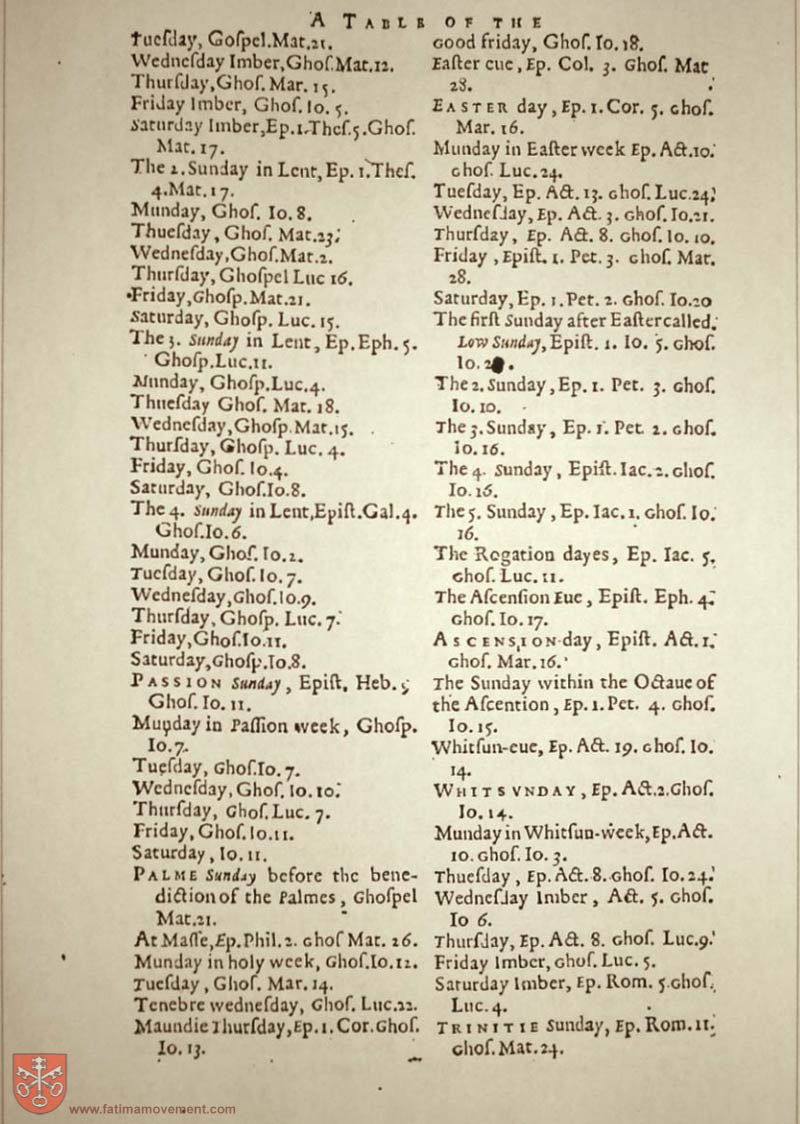 A TABLE OF THE
Tueſday, Goſpel.Mat.21.
Wedneſday Imber,Ghoſ.Mat.12.
Thurſday,Ghoſ. Mar. 15.
Friday Imber, Ghoſ. Io. 5.
Saturday Imber,Ep.1.Theſ.5.Ghoſ.
Mat. 17.
The 2. Sunday in Lent, Ep. 1.Theſ.
4.Mat.17.
Munday, Ghoſ. Io. 8.
Thueſday, Ghoſ. Mat.23.
Wedneſday,Ghoſ.Mat.2.
Thurſday, Ghoſpel Luc 16.
Friday,Ghoſp.Mat.21.
Saturday, Ghoſp. Luc. 15.
The 3. Sunday in Lent, Ep.Eph. 5.
Ghoſp.Luc.11.
Munday, Ghoſp.Luc.4.
Thueſday Ghoſ. Mat. 18.
Wedneſday,Ghoſp.Mat.15.
Thurſday, Ghoſp. Luc. 4.
Friday, Ghoſ. Io.4.
Saturday, Ghoſ.Io.8.
The 4. Sunday in Lent,Epiſt.Gal.4.
Ghoſ.Io.6.
Munday, Ghoſ. Io.2.
Tueſday, Ghoſ. Io. 7.
Wedneſday,Ghoſ.Io.9.
Thurſday, Ghoſp. Luc. 7.
Friday,Ghoſ.Io.11.
Saturday,Ghoſp.Io.8.
PASSION Sunday, Epiſt. Heb. 9
Ghoſ. Io. 11.
Munday in Paſſion week, Ghoſp.
Io.7.
Tueſday, Ghoſ.Io. 7.
Wedneſday, Ghoſ. Io. 10.
Thurſday, Ghoſ.Luc. 7.
Friday, Ghoſ. Io.11.
Saturday, Io. 11.
PALME Sunday before the bene-
diction of the Palmes, Ghoſpel
Mat.21.
At Maſſe,Ep.Phil.2. Ghoſ Mat. 26.
Munday in holy week, Ghoſ.Io.12.
Tueſday, Ghoſ. Mar. 14.
Tenebre wedneſday, Ghoſ. Luc.22.
Maundie Thurſday,Ep.1.Cor.Ghoſ.
Io. 13.
Good friday, Ghoſ. Io. 18.
Eaſter eue, Ep. Col. 3. Ghoſ. Mat
28.
EASTER day, Ep. 1. Cor. 5. Ghoſ.
Mar. 16.
Munday in Eaſter week Ep. Act.10.
Ghoſ. Luc.24.
Tueſday, Ep. Act. 13. Ghoſ. Luc.24.
Wedneſday, Ep. Act. 3. Ghoſ. Io.21.
Thurſday, Ep. Act. 8. Ghoſ. Io. 10.
Friday, Epiſt. 1. Pet. 3. Ghoſ. Mat.
28.
Saturday, Ep. 1. Pet. 2. Ghoſ. Io.20
The firſt Sunday after Eaſter called.
Low Sunday, Epiſt. 1. Io. 5. Ghoſ.
Io.
The 2. Sunday, Ep. 1. Pet. 3. Ghoſ.
Io. 10.
The 3. Sunday, Ep. 1. Pet. 2. Ghoſ.
Io. 16.
The 4. Sunday, Epiſt. Iac. 2. Ghoſ.
Io. 16.
The 5. Sunday, Ep. Iac. 1. Ghoſ. Io.
16.
The Rogation dayes, Ep. Iac. 5.
Ghoſ. Luc. 11.
The Aſcenſion Eue, Epiſt. Eph. 4.
Ghoſ. Io. 17.
ASCENSION day, Epiſt. Act.1.
Ghoſ. Mar. 16.
The Sunday within the Octaue of
the Aſcention, Ep. 1. Pet. 4. Ghoſ.
Io. 15.
Whitſun-eue, Ep. Act. 19. Ghoſ. Io.
14.
WHITSVNDAY, Ep. Act.2.Ghoſ.
Io. 14.
Munday in Whitſun-week,Ep.Act.
10. Ghoſ. Io. 3.
Thueſday, Ep. Act. 8. Ghoſ. Io.24.
Wedneſday Imber, Act. 5. Ghoſ.
Io 6.
Thurſday, Ep. Act. 8. Ghoſ. Luc.9.
Friday Imber, Ghoſ. Luc. 5.
Saturday Imber, Ep. Rom. 5.Ghoſ.
Luc. 4.
TRINITIE Sunday, Ep. Rom. 11.
Ghoſ. Mat.24.
www.fatimamovement.com